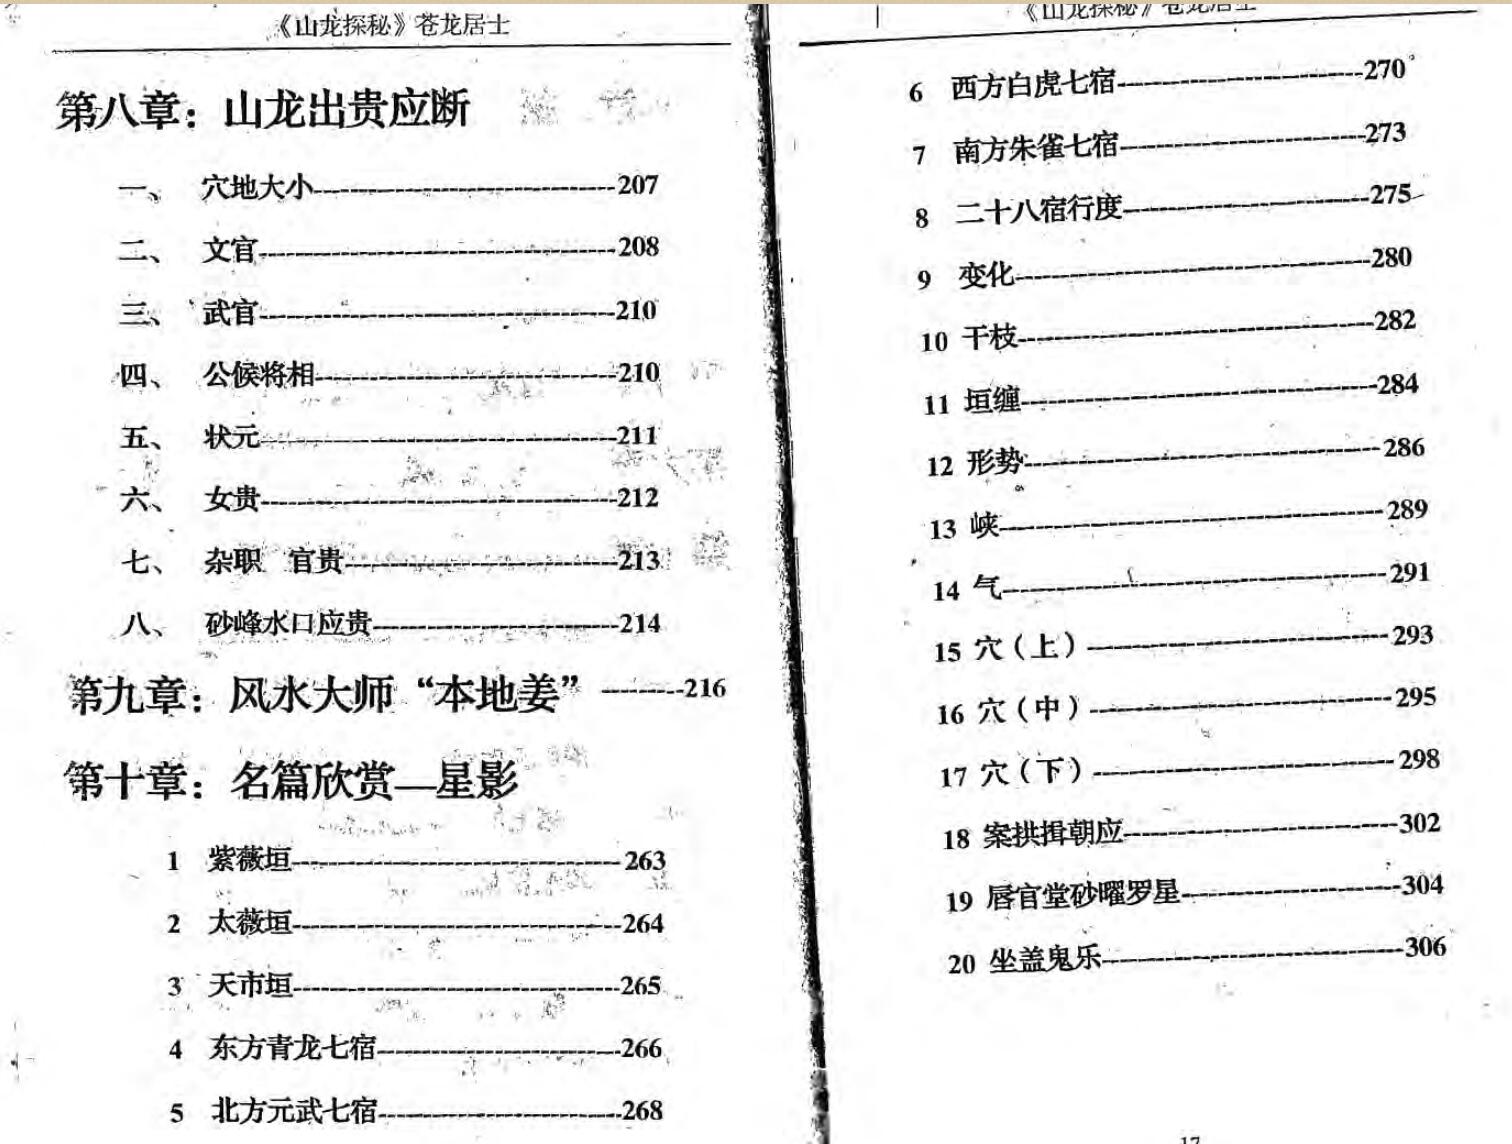 《山龙探秘》苍龙居士
第八章：山龙出贵应断
一、 穴地大小----207
二、 文官----208
三、 武官----210
四、 公候将相----210
五、 状元----211
六、 女贵----212
七、 杂职 官贵----213
八、 砂峰水口应贵----214
第九章：风水大师“本地姜”----216
第十章：名篇欣赏—星影
1 紫薇垣----263
2 太薇垣----264
3 天市垣----265
4 东方青龙七宿----266
5 北方元武七宿----268
《山龙探秘》苍龙居士
6 西方白虎七宿----270
7 南方朱雀七宿----273
8 二十八宿行度----275
9 变化----280
10 干枝----282
11 垣缠----284
12 形势----286
13 峡----289
14 气----291
15 穴（上）----293
16 穴（中）----295
17 穴（下）----298
18 案拱揖朝应----302
19 唇官堂砂曜罗星----304
20 坐盖鬼乐----306
17